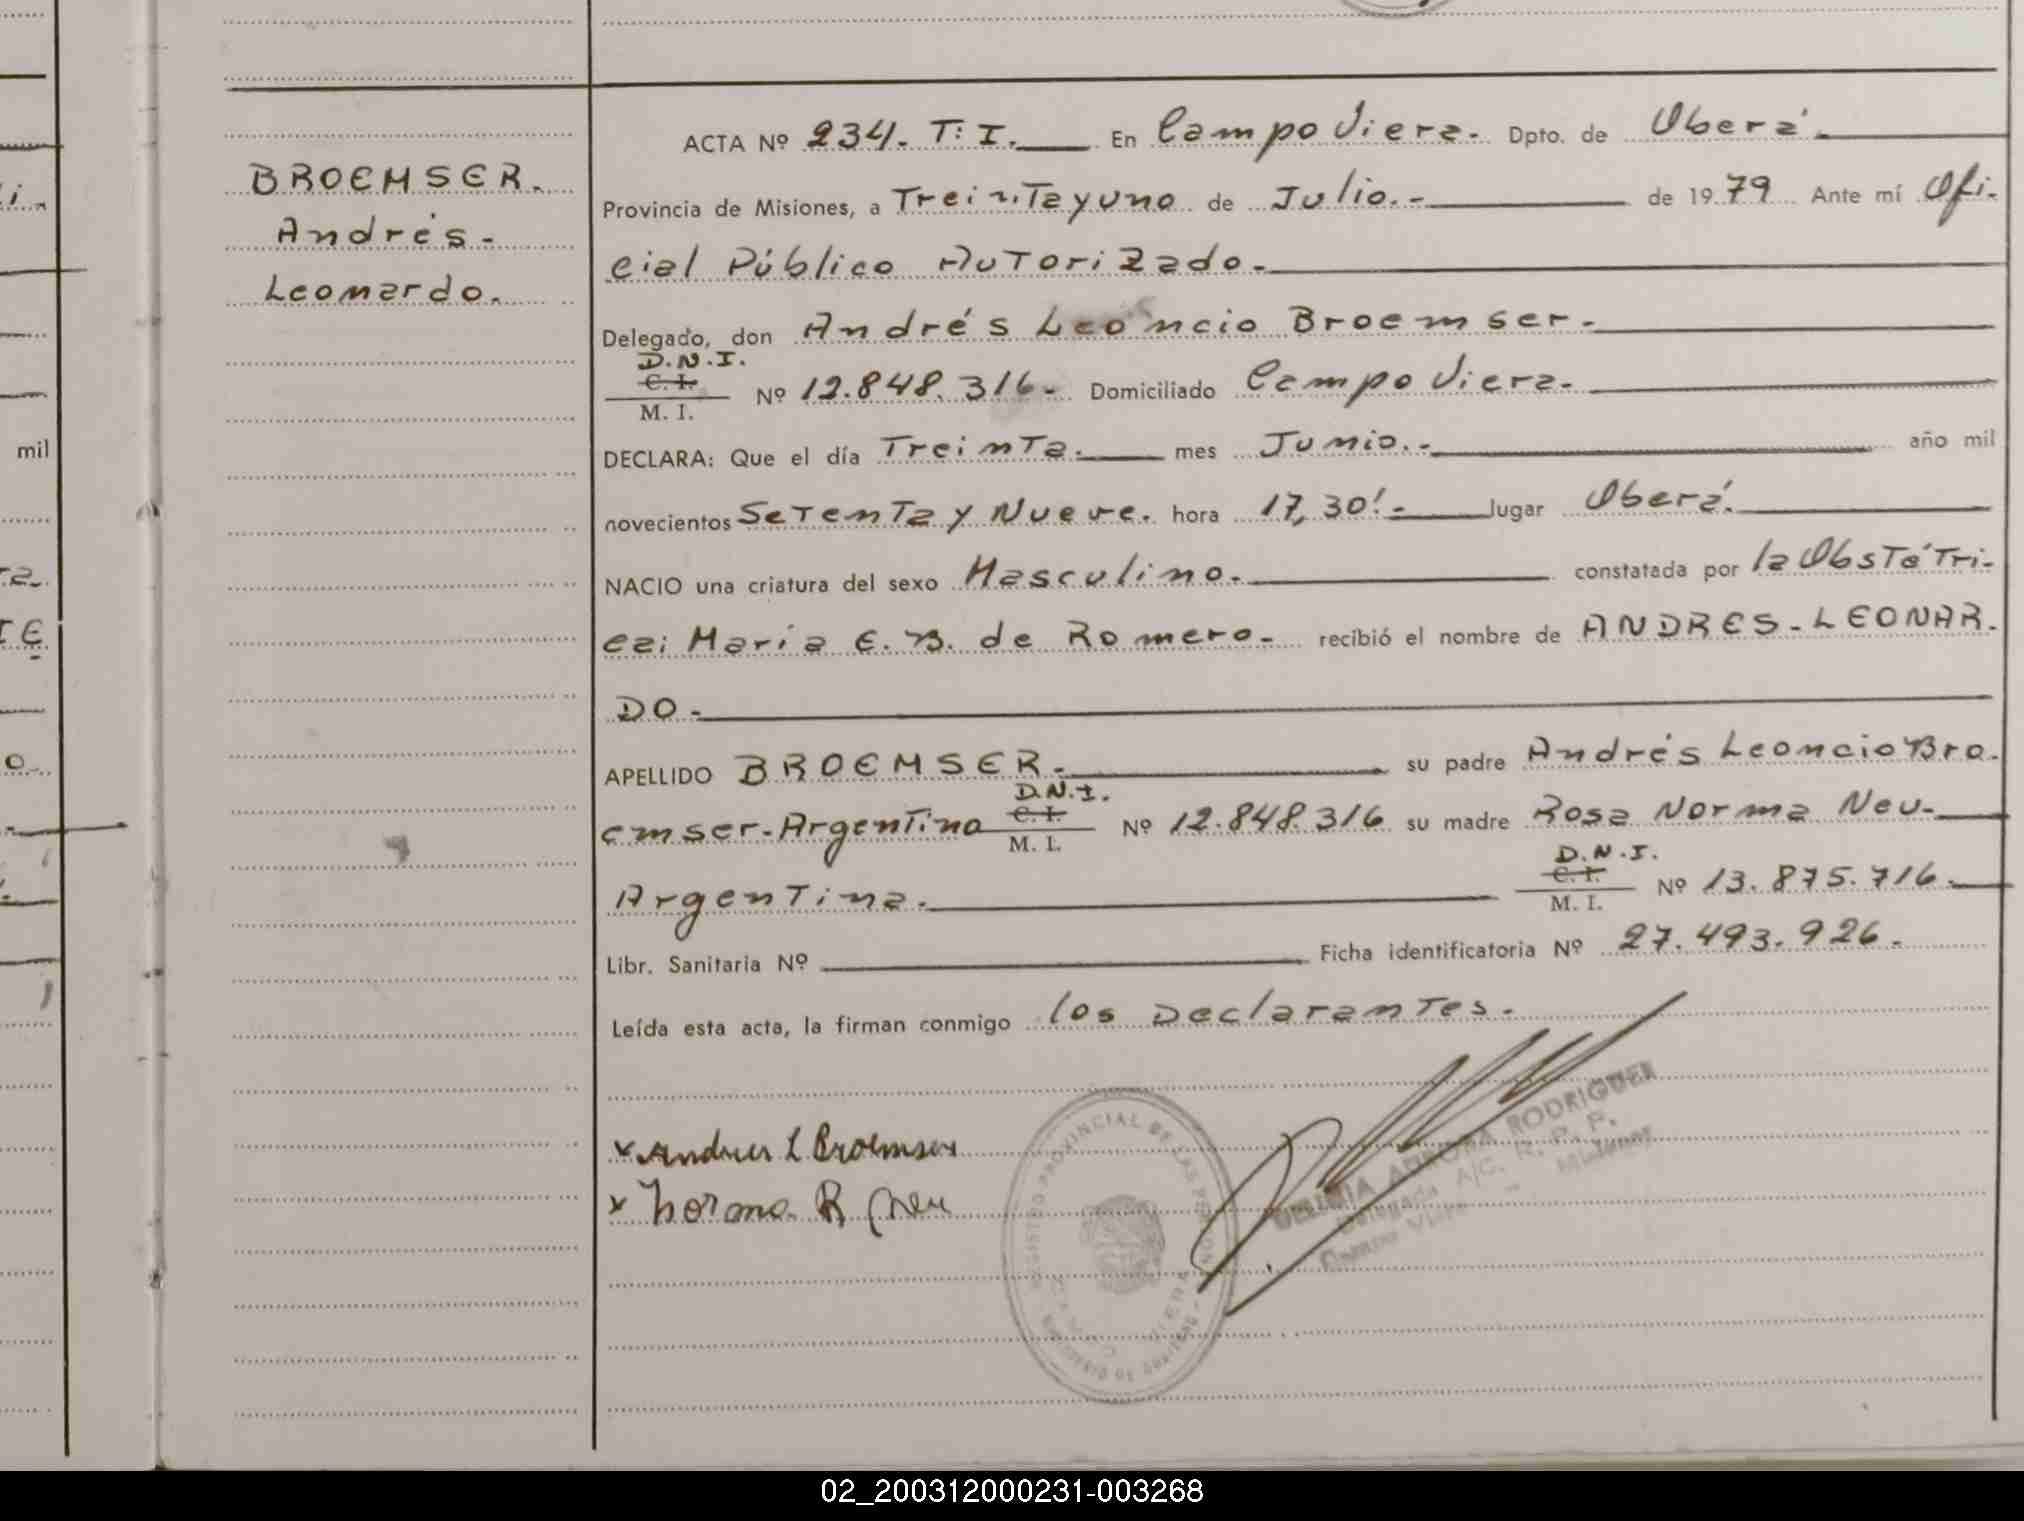 BROEMSER.
Andrés-
Leonardo.
ACTA Nº 234. T: I. En Campo Viera. Dpto. de Oberá.
Provincia de Misiones, a Treinta y uno de Julio.- de 1979 Ante mí Ofi-
cial Público Autorizado.-
Delegado, don Andrés Leoncio Broemser.-
D.N.I.
C. I.
M. I.
Nº 12.848.316.- Domiciliado Campo Viera.-
DECLARA: Que el día Treinta. mes Junio.- año mil
novecientos Setenta y Nueve. hora 17,30'.- lugar Oberá.
NACIO una criatura del sexo Masculino.- constatada por la Obstétri-
ca: María E. B. de Romero.- recibió el nombre de ANDRES-LEONAR-
DO.-
APELLIDO BROEMSER.- su padre Andrés Leoncio Bro-
emser-Argentino D.N.I. C. I. M. I. Nº 12.848.316 su madre Rosa Norma Neu-
Argentina. D.N.I. C. I. M. I. Nº 13.875.716.
Libr. Sanitaria Nº Ficha identificatoria Nº 27.493.926.
Leída esta acta, la firman conmigo los Declarantes.
x Andres L Broemser
x Norma R Neu
REGISTRO PROVINCIAL DE LAS PERSONAS
MINISTERIO DE GOBIERNO
CAMPO VIERA
RODRIGUEZ
Delegada A/C. R. P. P.
Campo Viera - Misiones
mil
02_200312000231-003268